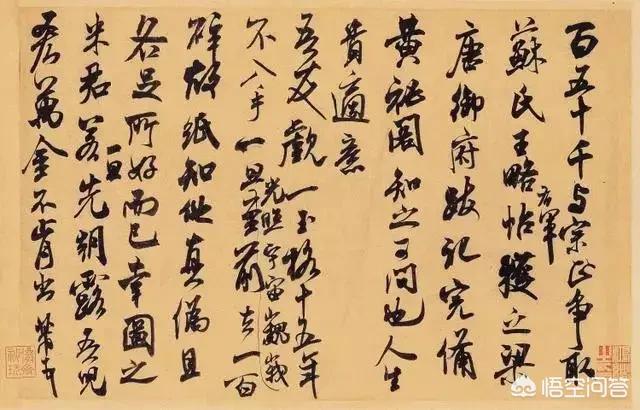 百五十千与宗正争取
蘇氏王略帖右軍獲之梁
唐御府跋記完備
黄秘閣知之可問也人生
貴適意
吾友覷一玉格十五年
不入手一旦光照宇宙巍峩至前去一百
碎故紙知他真僞且
各足所好而已幸圖之
米君若一旦先朝露吾兒
吝萬金不肯出芾
悟空问答